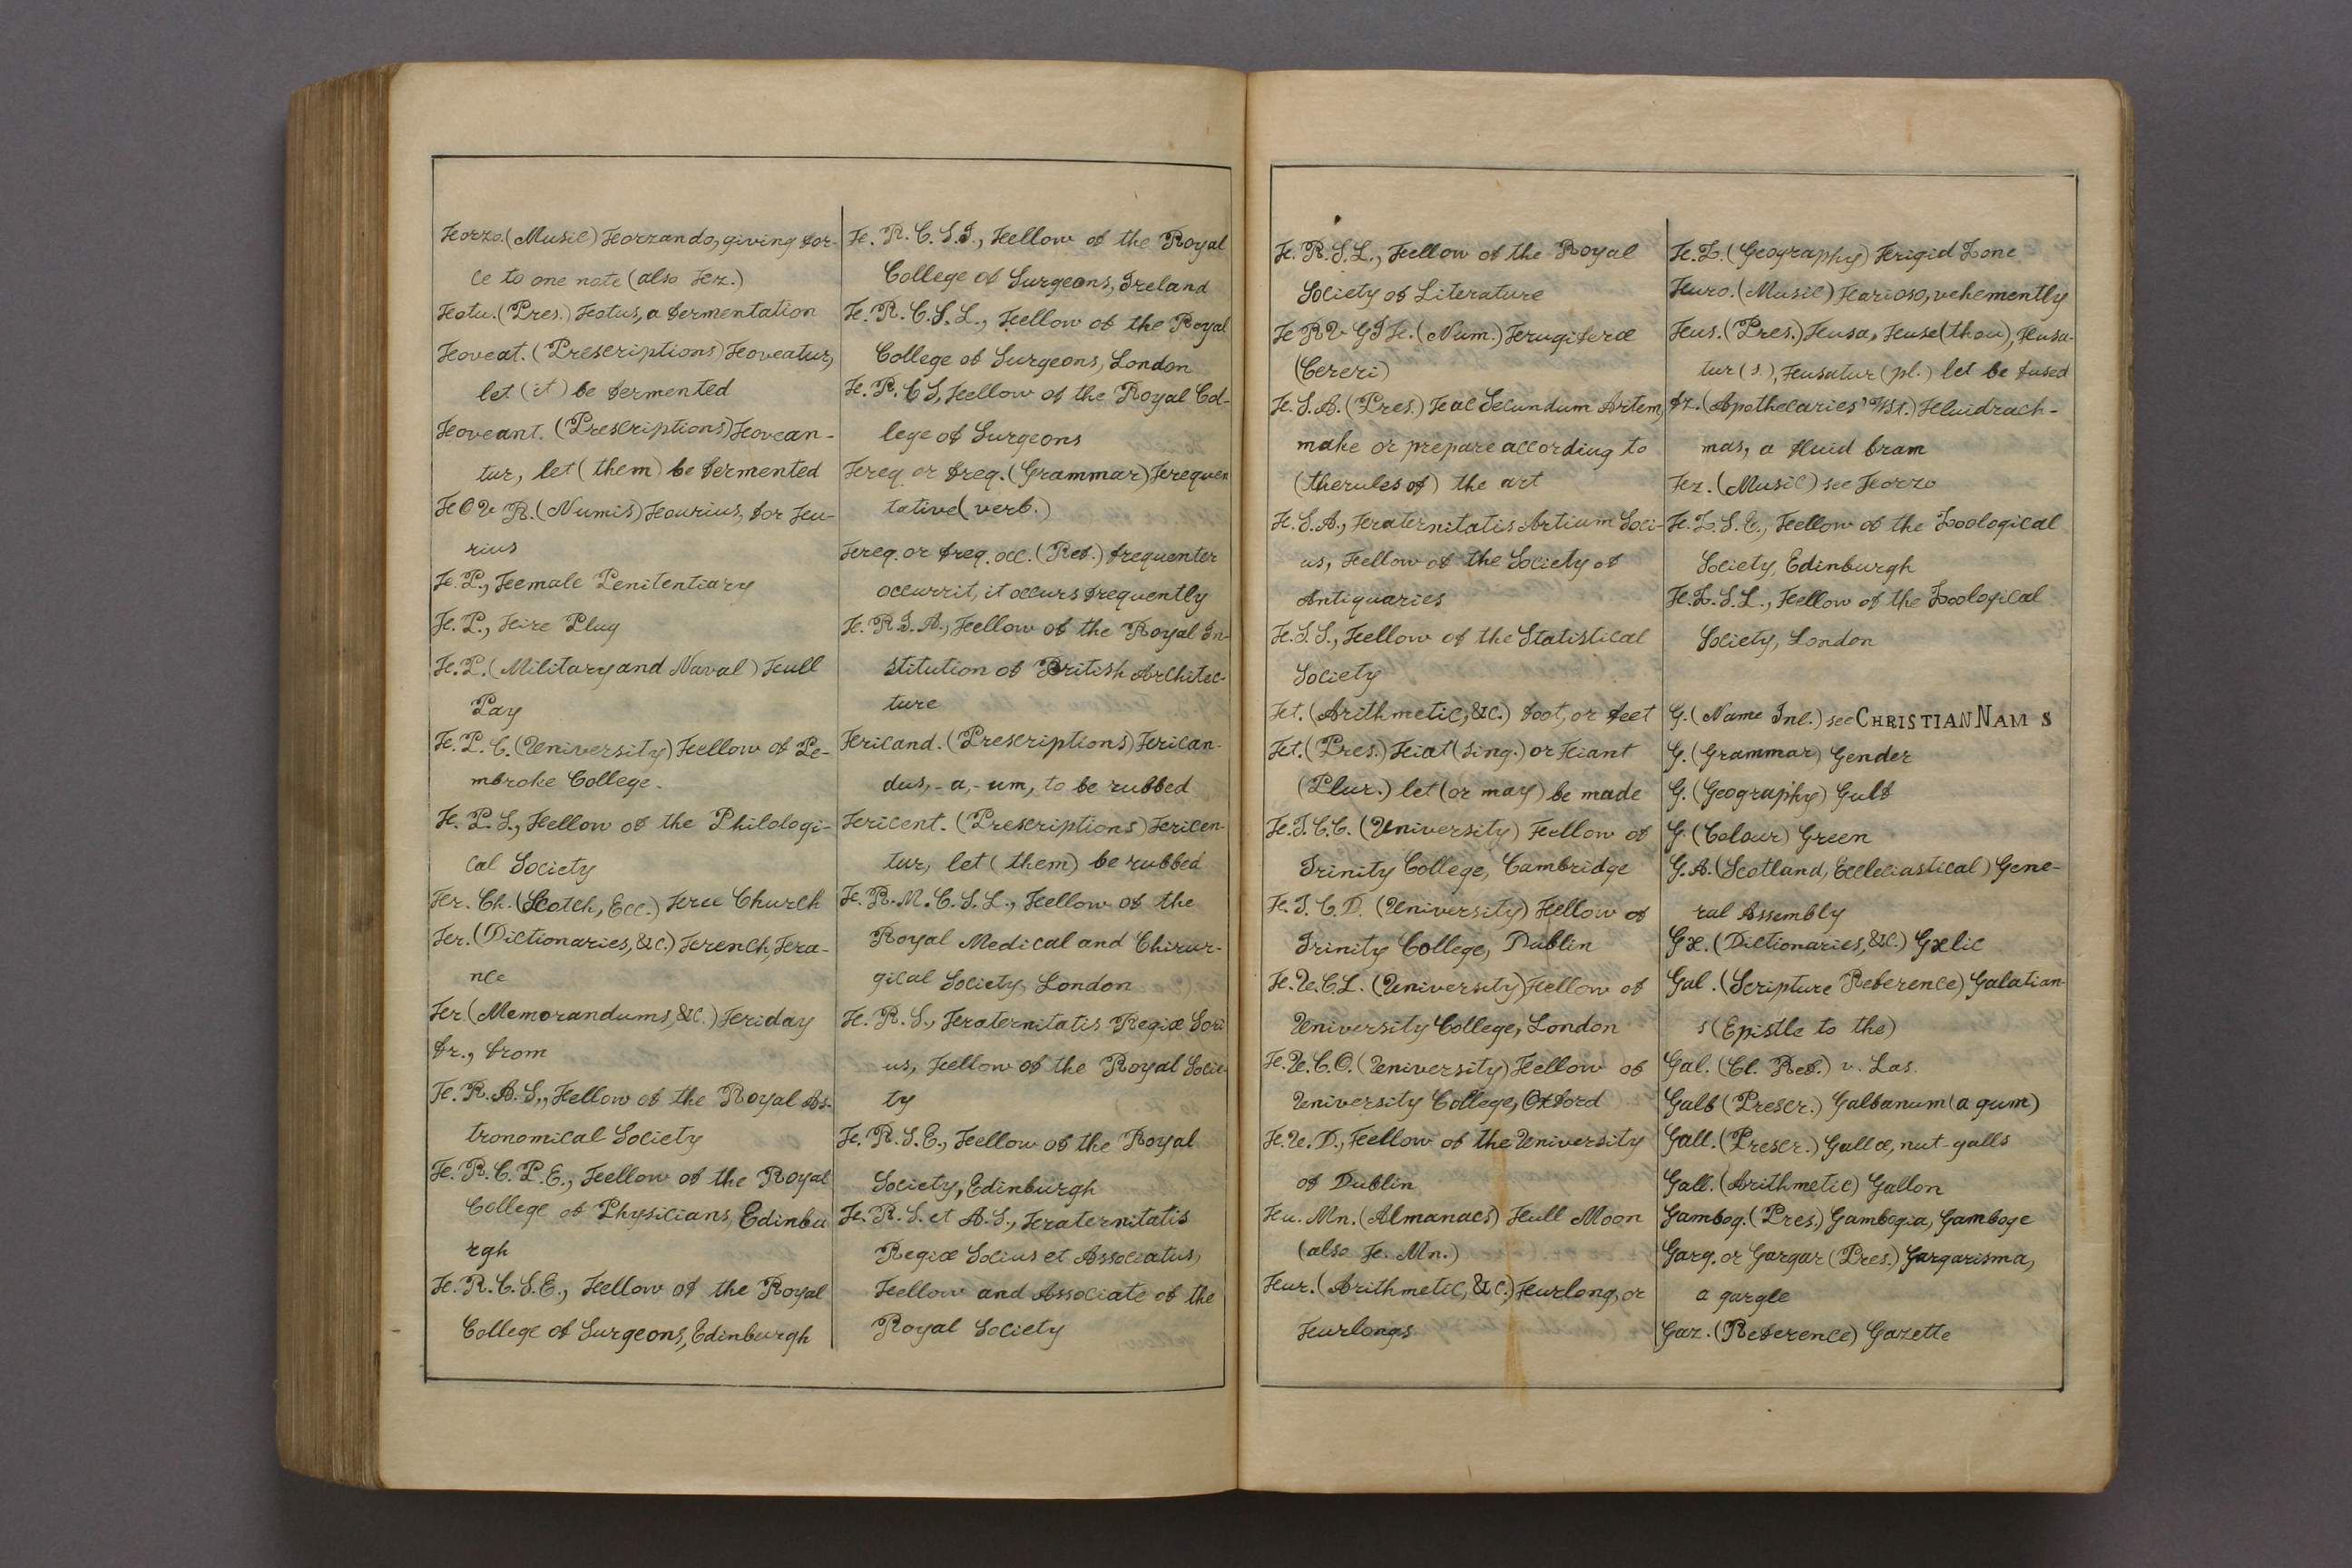 Forzo.(Music) Forzando, giving for-
ce to one note (also Fz.)
Fotu.(Pres.) Fotus, a fermentation
Foveat. (Prescriptions) Foveatur,
let (it) be fermented
Foveant. (Prescriptions) Fovean-
tur, let (them) be fermented
FOVR.(Numis) Fourius, for Fu-
rius
F.P., Female Penitentiary
F.P., Fire Plug
F.P.(Military and Naval) Full
Pay
F.P.C.(University) Fellow of Pe-
mbroke College.
F.P.S., Fellow of the Philologi-
cal Society
Fr. Ch.(Scotch, Ecc.) Free Church
Fr.(Dictionaries, &c.) French, Fra-
nce
Fr.(Memorandums, &c.) Friday
fr., from
F.R.A.S., Fellow of the Royal As-
tronomical Society
F.R.C.P.E., Fellow of the Royal
College of Physicians, Edinbu
rgh
F.R.C.S.E., Fellow of the Royal
College of Surgeons, Edinburgh
F.R.C.S.I., Fellow of the Royal
College of Surgeons, Ireland
F.R.C.S.L., Fellow of the Royal
College of Surgeons, London
F.R.CS, Fellow of the Royal Col-
lege of Surgeons
Freq. or freq.(Grammar) Frequen
tative (verb.)
Freq. or freq. occ.(Ref.) frequenter
occurrit, it occurs frequently
F.R.I.A., Fellow of the Royal In-
stitution of British Architec-
ture
Fricand. (Prescriptions) Frican-
dus, -a, -um, to be rubbed
Fricent. (Prescriptions) Fricen-
tur, let (them) be rubbed
F.R.M.C.S.L., Fellow of the
Royal Medical and Chirur-
gical Society, London
F.R.S., Fraternitatis Regiæ Soci
us, Fellow of the Royal Socie-
ty
F.R.S.E., Fellow of the Royal
Society, Edinburgh
F.R.S. et A.S., Fraternitatis
Regiæ Socius et Associatus,
Fellow and Associate of the
Royal Society
F.R.S.L., Fellow of the Royal
Society of Literature
FRVGIF.(Num.) Frugiferæ
(Cereri)
F.S.A.(Pres.) Fac Secundum Artem,
make or prepare according to
(the rules of) the art
F.S.A., Fraternitatis Artium Soci-
us, Fellow of the Society of
Antiquaries
F.S.S., Fellow of the Statistical
Society
Ft.(Arithmetic, &c.) foot, or feet
Ft.(Pres.) Fiat (sing.) or Fiant
(Plur.) let (or may) be made
F.T.C.C.(University) Fellow of
Trinity College, Cambridge
F.T.C.D.(University) Fellow of
Trinity College, Dublin
F.U.C.L.(University) Fellow of
University College, London
F.U.C.O.(University) Fellow of
University College, Oxford
F.U.D., Fellow of the University
of Dublin
Fu. Mn.(Almanacs) Full Moon
(also F. Mn.)
Fur.(Arithmetic, &c.) Furlong, or
Furlongs
F.Z.(Geography) Frigid Zone
Furo.(Music) Farioso, vehemently
Fus.(Pres.) Fusa, Fuse (thou), Fusa-
tur (s.), Fusatur (pl.) let be fused
fz.(Apothecaries' Wt.) Fluidrach-
mas, a fluid bram
Fz.(Music) see Forzo
F.Z.S.E., Fellow of the Zoological
Society, Edinburgh
F.Z.S.L., Fellow of the Zoological
Society, London
G.(Name Inl.) see CHRISTIAN NAM S
G.(Grammar) Gender
G.(Geography) Gulf
G.(Colour) Green
G.A.(Scotland, Eccleciastical) Gene-
ral Assembly
Gæ.(Dictionaries, &c.) Gælic
Gal.(Scripture Reference) Galatian-
s (Epistle to the)
Gal.(Cl. Ref.) v. Las.
Galb (Prescr.) Galbanum (a gum)
Gall.(Prescr.) Gallæ, nut-galls
Gall.(Arithmetic) Gallon
Gambog.(Pres.) Gambogia, Gamboge
Garg. or Gargar (Pres.) Gargarisma,
a gargle
Gaz.(Reference) Gazette